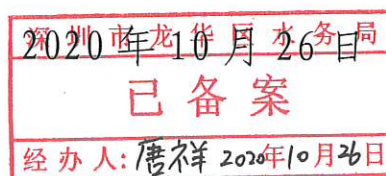 深圳市龙华区水务局
2020年10月26日
已备案
经办人:唐祥 2020年10月26日